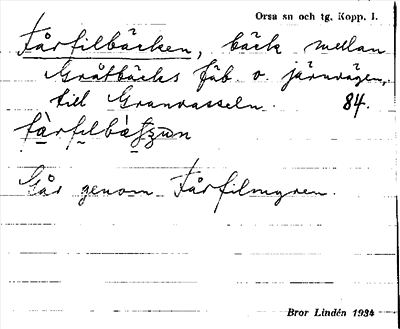 Orsa sn och tg. Kopp. l.
Fårfilbäcken, bäck mellan
Gråtbäcks fäb. o. järnvägen,
till Granvasseln. 84.
Går genom Fårfilmyren.
Bror Lindén 1934